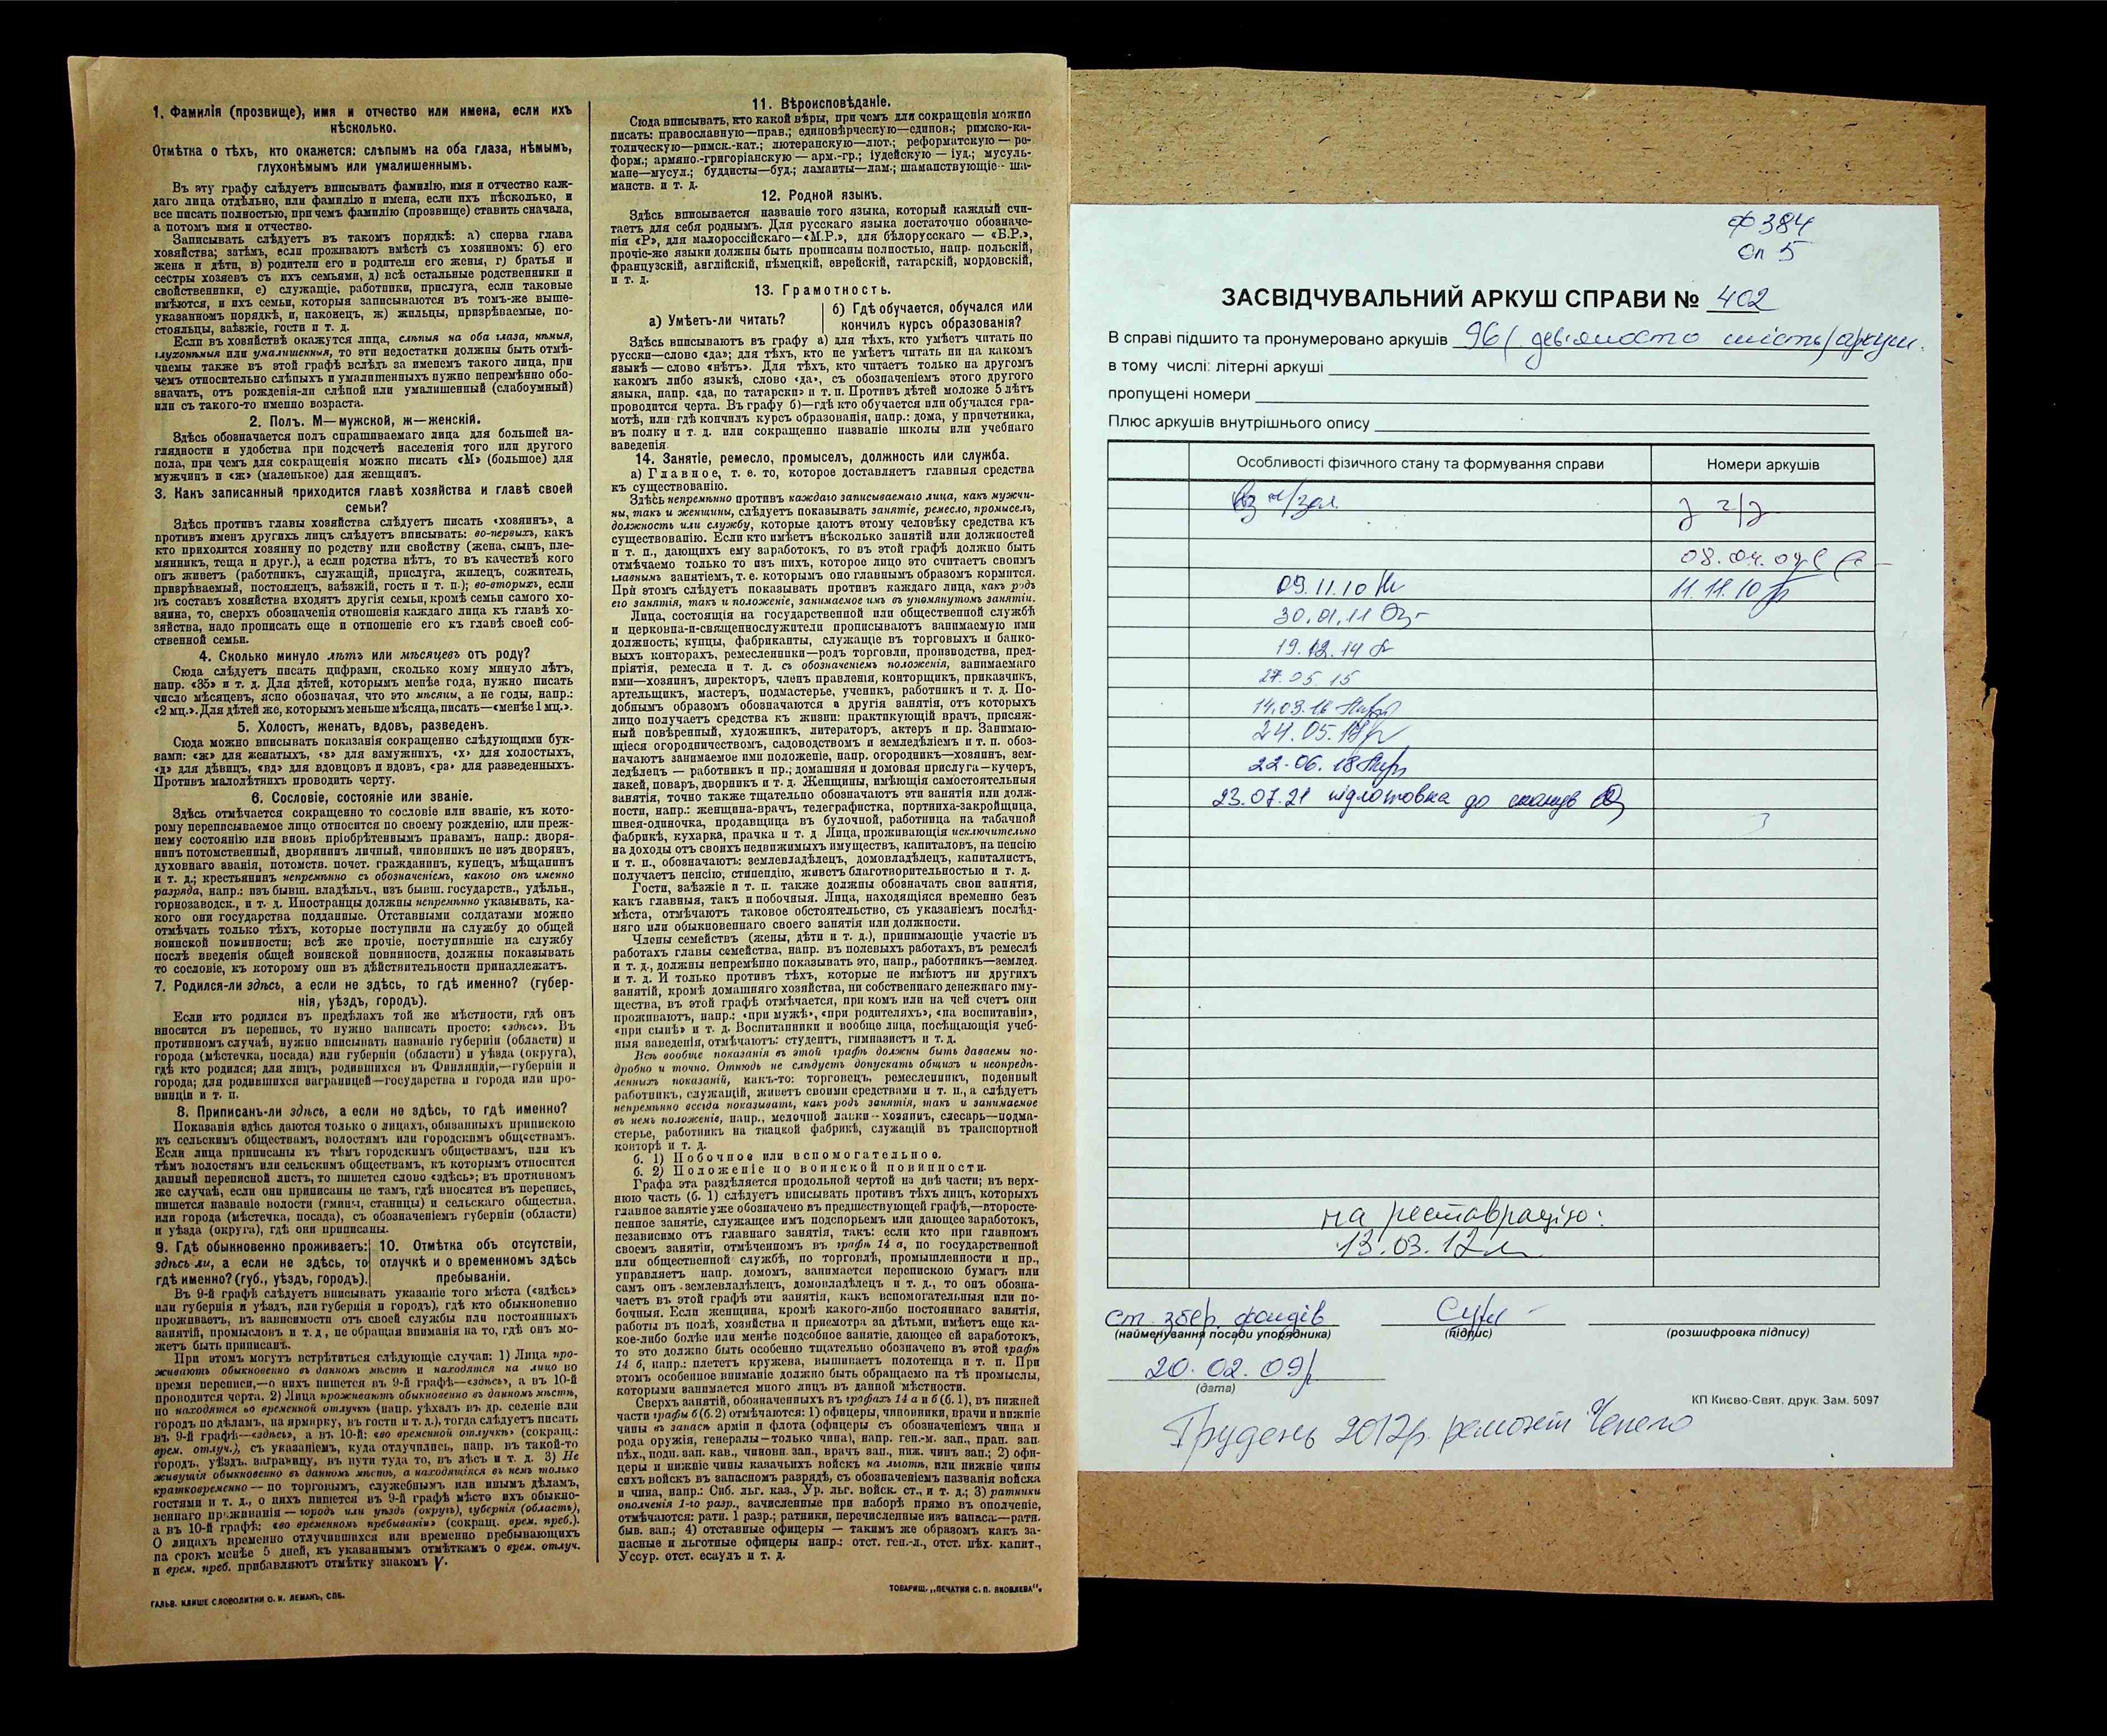 1. Фамилія (прозвище), имя и отчество или имена, если ихъ
нѣсколько.
Отмѣтка о тѣхъ, кто окажется: слѣпымъ на оба глаза, нѣмымъ,
глухонѣмымъ или умалишеннымъ.
Въ эту графу слѣдуетъ вписывать фамилію, имя и отчество каж-
даго лица отдѣльно, или фамилію и имена, если ихъ нѣсколько, и
все писать полностью, при чемъ фамилію (прозвище) ставить сначала,
а потомъ имя и отчество.
Записывать слѣдуетъ въ такомъ порядкѣ: а) сперва глава
хозяйства; затѣмъ, если проживаютъ вмѣстѣ съ хозяиномъ: б) его
жена и дѣти, в) родители его и родители его жены, г) братья и
сестры хозяевъ съ ихъ семьями, д) всѣ остальные родственники и
свойственники, е) служащіе, работники, прислуга, если таковые
имѣются, и ихъ семьи, которыя записываются въ томъ-же выше-
указанномъ порядкѣ, и, наконецъ, ж) жильцы, призрѣваемые, по-
стояльцы, заѣзжіе, гости и т. д.
Если въ хозяйствѣ окажутся лица, слѣпыя на оба глаза, нѣмыя,
глухонѣмыя или умалишенныя, то эти недостатки должны быть отмѣ-
чаемы также въ этой графѣ вслѣдъ за именемъ такого лица, при
чемъ относительно слѣпыхъ и умалишенныхъ нужно непремѣнно обо-
значать, отъ рожденія-ли слѣпой или умалишенный (слабоумный)
или съ такого-то именно возраста.
2. Полъ. М—мужской, ж—женскій.
Здѣсь обозначается полъ спрашиваемаго лица для большей на-
глядности и удобства при подсчетѣ населенія того или другого
пола, при чемъ для сокращенія можно писать «М» (большое) для
мужчинъ и «ж» (маленькое) для женщинъ.
3. Какъ записанный приходится главѣ хозяйства и главѣ своей
семьи?
Здѣсь противъ главы хозяйства слѣдуетъ писать «хозяинъ», а
противъ именъ другихъ лицъ слѣдуетъ вписывать: во-первыхъ, какъ
кто приходится хозяину по родству или свойству (жена, сынъ, пле-
мянникъ, теща и друг.), а если родства нѣтъ, то въ качествѣ кого
онъ живетъ (работникъ, служащій, прислуга, жилецъ, сожитель,
призрѣваемый, постоялецъ, заѣзжій, гость и т. п.); во-вторыхъ, если
въ составъ хозяйства входятъ другія семьи, кромѣ семьи самого хо-
зяина, то, сверхъ обозначенія отношенія каждаго лица къ главѣ хо-
зяйства, надо прописать еще и отношеніе его къ главѣ своей соб-
ственной семьи.
4. Сколько минуло лѣтъ или мѣсяцевъ отъ роду?
Сюда слѣдуетъ писать цифрами, сколько кому минуло лѣтъ,
напр. «35» и т. д. Для дѣтей, которымъ менѣе года, нужно писать
число мѣсяцевъ, ясно обозначая, что это мѣсяцы, а не годы, напр.:
«2 мц.». Для дѣтей же, которымъ меньше мѣсяца, писать—«менѣе 1 мц.».
5. Холостъ, женатъ, вдовъ, разведенъ.
Сюда можно вписывать показанія сокращенно слѣдующими бук-
вами: «ж» для женатыхъ, «з» для замужнихъ, «х» для холостыхъ,
«д» для дѣвицъ, «вд» для вдовцовъ и вдовъ, «рз» для разведенныхъ.
Противъ малолѣтнихъ проводить черту.
6. Сословіе, состояніе или званіе.
Здѣсь отмѣчается сокращенно то сословіе или званіе, къ кото-
рому переписываемое лицо относится по своему рожденію, или преж-
нему состоянію или вновь пріобрѣтеннымъ правамъ, напр.: дворя-
нинъ потомственный, дворянинъ личный, чиновникъ не изъ дворянъ,
духовнаго званія, потомств. почет. гражданинъ, купецъ, мѣщанинъ
и т. д.; крестьянинъ непремѣнно съ обозначеніемъ, какого онъ именно
разряда, напр.: изъ бывш. владѣльч., изъ бывш. государств., удѣльн.,
горнозаводск., и т. д. Иностранцы должны непремѣнно указывать, ка-
кого они государства подданные. Отставными солдатами можно
отмѣчать только тѣхъ, которые поступили на службу до общей
воинской повинности; всѣ же прочіе, поступившіе на службу
послѣ введенія общей воинской повинности, должны показывать
то сословіе, къ которому они въ дѣйствительности принадлежатъ.
7. Родился-ли здѣсь, а если не здѣсь, то гдѣ именно? (губер-
нія, уѣздъ, городъ).
Если кто родился въ предѣлахъ той же мѣстности, гдѣ онъ
вносится въ перепись, то нужно написать просто: «здѣсь». Въ
противномъ случаѣ, нужно вписывать названіе губерніи (области) и
города (мѣстечка, посада) или губерніи (области) и уѣзда (округа),
гдѣ кто родился; для лицъ, родившихся въ Финляндіи,—губерніи и
города; для родившихся заграницей—государства и города или про-
винціи и т. п.
8. Приписанъ-ли здѣсь, а если не здѣсь, то гдѣ именно?
Показанія здѣсь даются только о лицахъ, обязанныхъ припискою
къ сельскимъ обществамъ, волостямъ или городскимъ обществамъ.
Если лица приписаны къ тѣмъ городскимъ обществамъ, или къ
тѣмъ волостямъ или сельскимъ обществамъ, къ которымъ относится
данный переписной листъ, то пишется слово «здѣсь»; въ противномъ
же случаѣ, если они приписаны не тамъ, гдѣ вносятся въ перепись,
пишется названіе волости (гмины, станицы) и сельскаго общества,
или города (мѣстечка, посада), съ обозначеніемъ губерніи (области)
и уѣзда (округа), гдѣ они приписаны.
9. Гдѣ обыкновенно проживаетъ:
здѣсь ли, а если не здѣсь, то
гдѣ именно? (губ., уѣздъ, городъ).
10. Отмѣтка объ отсутствіи,
отлучкѣ и о временномъ здѣсь
пребываніи.
Въ 9-й графѣ слѣдуетъ вписывать указаніе того мѣста («здѣсь»
или губернія и уѣздъ, или губернія и городъ), гдѣ кто обыкновенно
проживаетъ, въ зависимости отъ своей службы или постоянныхъ
занятій, промысловъ и т. д., не обращая вниманія на то, гдѣ онъ мо-
жетъ быть приписанъ.
При этомъ могутъ встрѣтиться слѣдующіе случаи: 1) Лица про-
живаютъ обыкновенно въ данномъ мѣстѣ и находятся на лицо во
время переписи,—о нихъ пишется въ 9-й графѣ—«здѣсь», а въ 10-й
проводится черта. 2) Лица проживаютъ обыкновенно въ данномъ мѣстѣ,
но находятся во временной отлучкѣ (напр. уѣхалъ въ др. селеніе или
городъ по дѣламъ, на ярмарку, въ гости и т. д.), тогда слѣдуетъ писать
въ 9-й графѣ—«здѣсь», а въ 10-й: «во временной отлучкѣ» (сокращ.:
врем. отлуч.), съ указаніемъ, куда отлучились, напр. въ такой-то
городъ, уѣздъ, заграницу, въ пути туда то, въ лѣсъ и т. д. 3) Не
живущія обыкновенно въ данномъ мѣстѣ, а находящіяся въ немъ только
кратковременно—по торговымъ, служебнымъ или инымъ дѣламъ,
гостями и т. д., о нихъ пишется въ 9-й графѣ мѣсто ихъ обыкно-
веннаго проживанія—городъ или уѣздъ (округъ), губернія (область),
а въ 10-й графѣ: «во временномъ пребываніи» (сокращ. врем. преб.).
О лицахъ временно отлучившихся или временно пребывающихъ
на срокъ менѣе 5 дней, къ указаннымъ отмѣткамъ о врем. отлуч.
и врем. преб. прибавляютъ отмѣтку знакомъ V.
ГАЛЬВ. КЛИШЕ СЛОВОЛИТНИ О. И. ЛЕМАНЪ, СПБ.
11. Вѣроисповѣданіе.
Сюда вписывать, кто какой вѣры, при чемъ для сокращенія можно
писать: православную—прав.; единовѣрческую—единов.; римско-ка-
толическую—римск.-кат.; лютеранскую—лют.; реформатскую—ре-
форм.; армяно.-григоріанскую—арм.-гр.; іудейскую—іуд.; мусуль-
мане—мусул.; буддисты—буд.; ламаиты—лам.; шаманствующіе—ша-
манств. и т. д.
12. Родной языкъ.
Здѣсь вписывается названіе того языка, который каждый счи-
таетъ для себя роднымъ. Для русскаго языка достаточно обозначе-
нія «Р», для малороссійскаго—«М.Р.», для бѣлорусскаго—«Б.Р.»,
прочіе-же языки должны быть прописаны полностью, напр. польскій,
французскій, англійскій, нѣмецкій, еврейскій, татарскій, мордовскій,
и т. д.
13. Грамотность.
а) Умѣетъ-ли читать?
б) Гдѣ обучается, обучался или
кончилъ курсъ образованія?
Здѣсь вписываютъ въ графу а) для тѣхъ, кто умѣетъ читать по
русски—слово «да»; для тѣхъ, кто не умѣетъ читать ни на какомъ
языкѣ—слово «нѣтъ». Для тѣхъ, кто читаетъ только на другомъ
какомъ либо языкѣ, слово «да», съ обозначеніемъ этого другого
языка, напр. «да, по татарски» и т. п. Противъ дѣтей моложе 5 лѣтъ
проводится черта. Въ графу б)—гдѣ кто обучается или обучался гра-
мотѣ, или гдѣ кончилъ курсъ образованія, напр.: дома, у причетника,
въ полку и т. д. или сокращенно названіе школы или учебнаго
заведенія.
14. Занятіе, ремесло, промыселъ, должность или служба.
а) Главное, т. е. то, которое доставляетъ главныя средства
къ существованію.
Здѣсь непремѣнно противъ каждаго записываемаго лица, какъ мужчи-
ны, такъ и женщины, слѣдуетъ показывать занятіе, ремесло, промыселъ,
должность или службу, которые даютъ этому человѣку средства къ
существованію. Если кто имѣетъ нѣсколько занятій или должностей
и т. п., дающихъ ему заработокъ, то въ этой графѣ должно быть
отмѣчаемо только то изъ нихъ, которое лицо это считаетъ своимъ
главнымъ занятіемъ, т. е. которымъ оно главнымъ образомъ кормится.
При этомъ слѣдуетъ показывать противъ каждаго лица, какъ родъ
его занятія, такъ и положеніе, занимаемое имъ въ упомянутомъ занятіи.
Лица, состоящія на государственной или общественной службѣ
и церковно-и-священнослужители прописываютъ занимаемую ими
должность; купцы, фабриканты, служащіе въ торговыхъ и банко-
выхъ конторахъ, ремесленники—родъ торговли, производства, пред-
пріятія, ремесла и т. д. съ обозначеніемъ положенія, занимаемаго
ими—хозяинъ, директоръ, членъ правленія, конторщикъ, приказчикъ,
артельщикъ, мастеръ, подмастерье, ученикъ, работникъ и т. д. По-
добнымъ образомъ обозначаются и другія занятія, отъ которыхъ
лицо получаетъ средства къ жизни: практикующій врачъ, присяж-
ный повѣренный, художникъ, литераторъ, актеръ и пр. Занимаю-
щіеся огородничествомъ, садоводствомъ и земледѣліемъ и т. п. обоз-
начаютъ занимаемое ими положеніе, напр. огородникъ—хозяинъ, зем-
ледѣлецъ—работникъ и пр.; домашняя и домовая прислуга—кучеръ,
лакей, поваръ, дворникъ и т. д. Женщины, имѣющія самостоятельныя
занятія, точно также тщательно обозначаютъ эти занятія или долж-
ности, напр.: женщина-врачъ, телеграфистка, портниха-закройщица,
швея-одиночка, продавщица въ булочной, работница на табачной
фабрикѣ, кухарка, прачка и т. д. Лица, проживающія исключительно
на доходы отъ своихъ недвижимыхъ имуществъ, капиталовъ, на пенсію
и т. п., обозначаютъ: землевладѣлецъ, домовладѣлецъ, капиталистъ,
получаетъ пенсію, стипендію, живетъ благотворительностью и т. д.
Гости, заѣзжіе и т. п. также должны обозначать свои занятія,
какъ главныя, такъ и побочныя. Лица, находящіяся временно безъ
мѣста, отмѣчаютъ таковое обстоятельство, съ указаніемъ послѣд-
няго или обыкновеннаго своего занятія или должности.
Члены семействъ (жены, дѣти и т. д.), принимающіе участіе въ
работахъ главы семейства, напр. въ полевыхъ работахъ, въ ремеслѣ
и т. д., должны непремѣнно показывать это, напр., работникъ—землед.
и т. д. И только противъ тѣхъ, которые не имѣютъ ни другихъ
занятій, кромѣ домашняго хозяйства, ни собственнаго денежнаго иму-
щества, въ этой графѣ отмѣчается, при комъ или на чей счетъ они
проживаютъ, напр.: «при мужѣ», «при родителяхъ», «на воспитаніи»,
«при сынѣ» и т. д. Воспитанники и вообще лица, посѣщающія учеб-
ныя заведенія, отмѣчаютъ: студентъ, гимназистъ и т. д.
Всѣ вообще показанія въ этой графѣ должны быть даваемы по-
дробно и точно. Отнюдь не слѣдуетъ допускать общихъ и неопредѣ-
ленныхъ показаній, какъ-то: торговецъ, ремесленникъ, поденный
работникъ, служащій, живетъ своими средствами и т. п., а слѣдуетъ
непремѣнно всегда показывать, какъ родъ занятія, такъ и занимаемое
въ немъ положеніе, напр., мелочной лавки—хозяинъ, слесарь—подма-
стерье, работникъ на ткацкой фабрикѣ, служащій въ транспортной
конторѣ и т. д.
б. 1) Побочное или вспомогательное.
б. 2) Положеніе по воинской повинности.
Графа эта раздѣляется продольной чертой на двѣ части; въ верх-
нюю часть (б. 1) слѣдуетъ вписывать противъ тѣхъ лицъ, которыхъ
главное занятіе уже обозначено въ предшествующей графѣ,—второсте-
пенное занятіе, служащее имъ подспорьемъ или дающее заработокъ,
независимо отъ главнаго занятія, такъ: если кто при главномъ
своемъ занятіи, отмѣченномъ въ графѣ 14 а, по государственной
или общественной службѣ, по торговлѣ, промышленности и пр.,
управляетъ напр. домомъ, занимается перепискою бумагъ или
самъ онъ землевладѣлецъ, домовладѣлецъ и т. д., то онъ обозна-
чаетъ въ этой графѣ эти занятія, какъ вспомогательныя или по-
бочныя. Если женщина, кромѣ какого-либо постояннаго занятія,
работы въ полѣ, хозяйства и присмотра за дѣтьми, имѣетъ еще ка-
кое-либо болѣе или менѣе подсобное занятіе, дающее ей заработокъ,
то это должно быть особенно тщательно обозначено въ этой графѣ
14 б, напр.: плететъ кружева, вышиваетъ полотенца и т. п. При
этомъ особенное вниманіе должно быть обращаемо на тѣ промыслы,
которыми занимается много лицъ въ данной мѣстности.
Сверхъ занятій, обозначенныхъ въ графахъ 14 а и б (б. 1), въ нижней
части графы б (б. 2) отмѣчаются: 1) офицеры, чиновники, врачи и нижніе
чины въ запасѣ арміи и флота (офицеры съ обозначеніемъ чина и
рода оружія, генералы—только чина), напр. ген.-м. зап., прап. зап.
пѣх., подп. зап. кав., чиновн. зап., врачъ зап., ниж. чинъ зап.; 2) офи-
церы и нижніе чины казачьихъ войскъ на льготѣ, или нижніе чины
сихъ войскъ въ запасномъ разрядѣ, съ обозначеніемъ названія войска
и чина, напр.: Сиб. льг. каз., Ур. льг. войск. ст., и т. д.; 3) ратники
ополченія 1-го разр., зачисленные при наборѣ прямо въ ополченіе,
отмѣчаются: ратн. 1 разр.; ратники, перечисленные изъ запаса:—ратн.
быв. зап.; 4) отставные офицеры — такимъ же образомъ какъ за-
пасные и льготные офицеры напр.: отст. ген.-л., отст. пѣх. капит.,
Уссур. отст. есаулъ и т. д.
ТОВАРИЩ. „ПЕЧАТНЯ С. П. ЯКОВЛЕВА“.
Ф 384
Оп 5
ЗАСВІДЧУВАЛЬНИЙ АРКУШ СПРАВИ № 402
В справі підшито та пронумеровано аркушів 96 (дев'яносто шість) аркуш.
в тому числі: літерні аркуші
пропущені номери
Плюс аркушів внутрішнього опису
Особливості фізичного стану та формування справи
Номери аркушів
08.04.09
09.11.10
11.11.10
30.01.11
19.12.14
27.05.15
14.03.16
24.05.18
22.06.18
23.07.21 підготовка до сканув
на реставрацію:
13.03.12
ст. збер. фондів
(найменування посади упорядника)
(підпис)
(розшифровка підпису)
20.02.09р
(дата)
КП Києво-Свят. друк. Зам. 5097
Грудень 2012р. ремонт